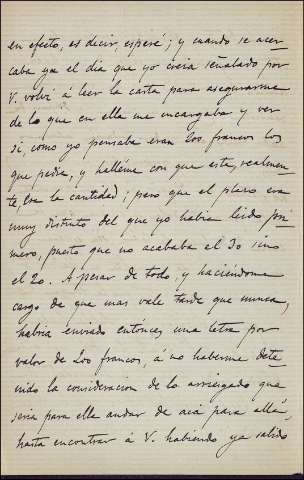 en efecto, es decir, esperé; y cuando se acer-
caba ya el dia que yo creia señalado por
V. volví á leer la carta para asegurarme
de lo que en ella me encargaba y ver
si, como yo pensaba eran 200 francos los
que pedia, y halléme con que esta, realmen-
te, era la cantidad; pero que el plazo era
muy distinto del que yo habia leido pri-
mero, puesto que no acababa el 30 sino
el 20. A pesar de todo, y haciéndome
cargo de que mas vale tarde que nunca,
habria enviado entónces una letra por
valor de 200 francos, á no haberme dete-
nido la consideracion de lo arriesgado que
seria para ella andar de acá para allá,
hasta encontrar á V. habiendo ya salido